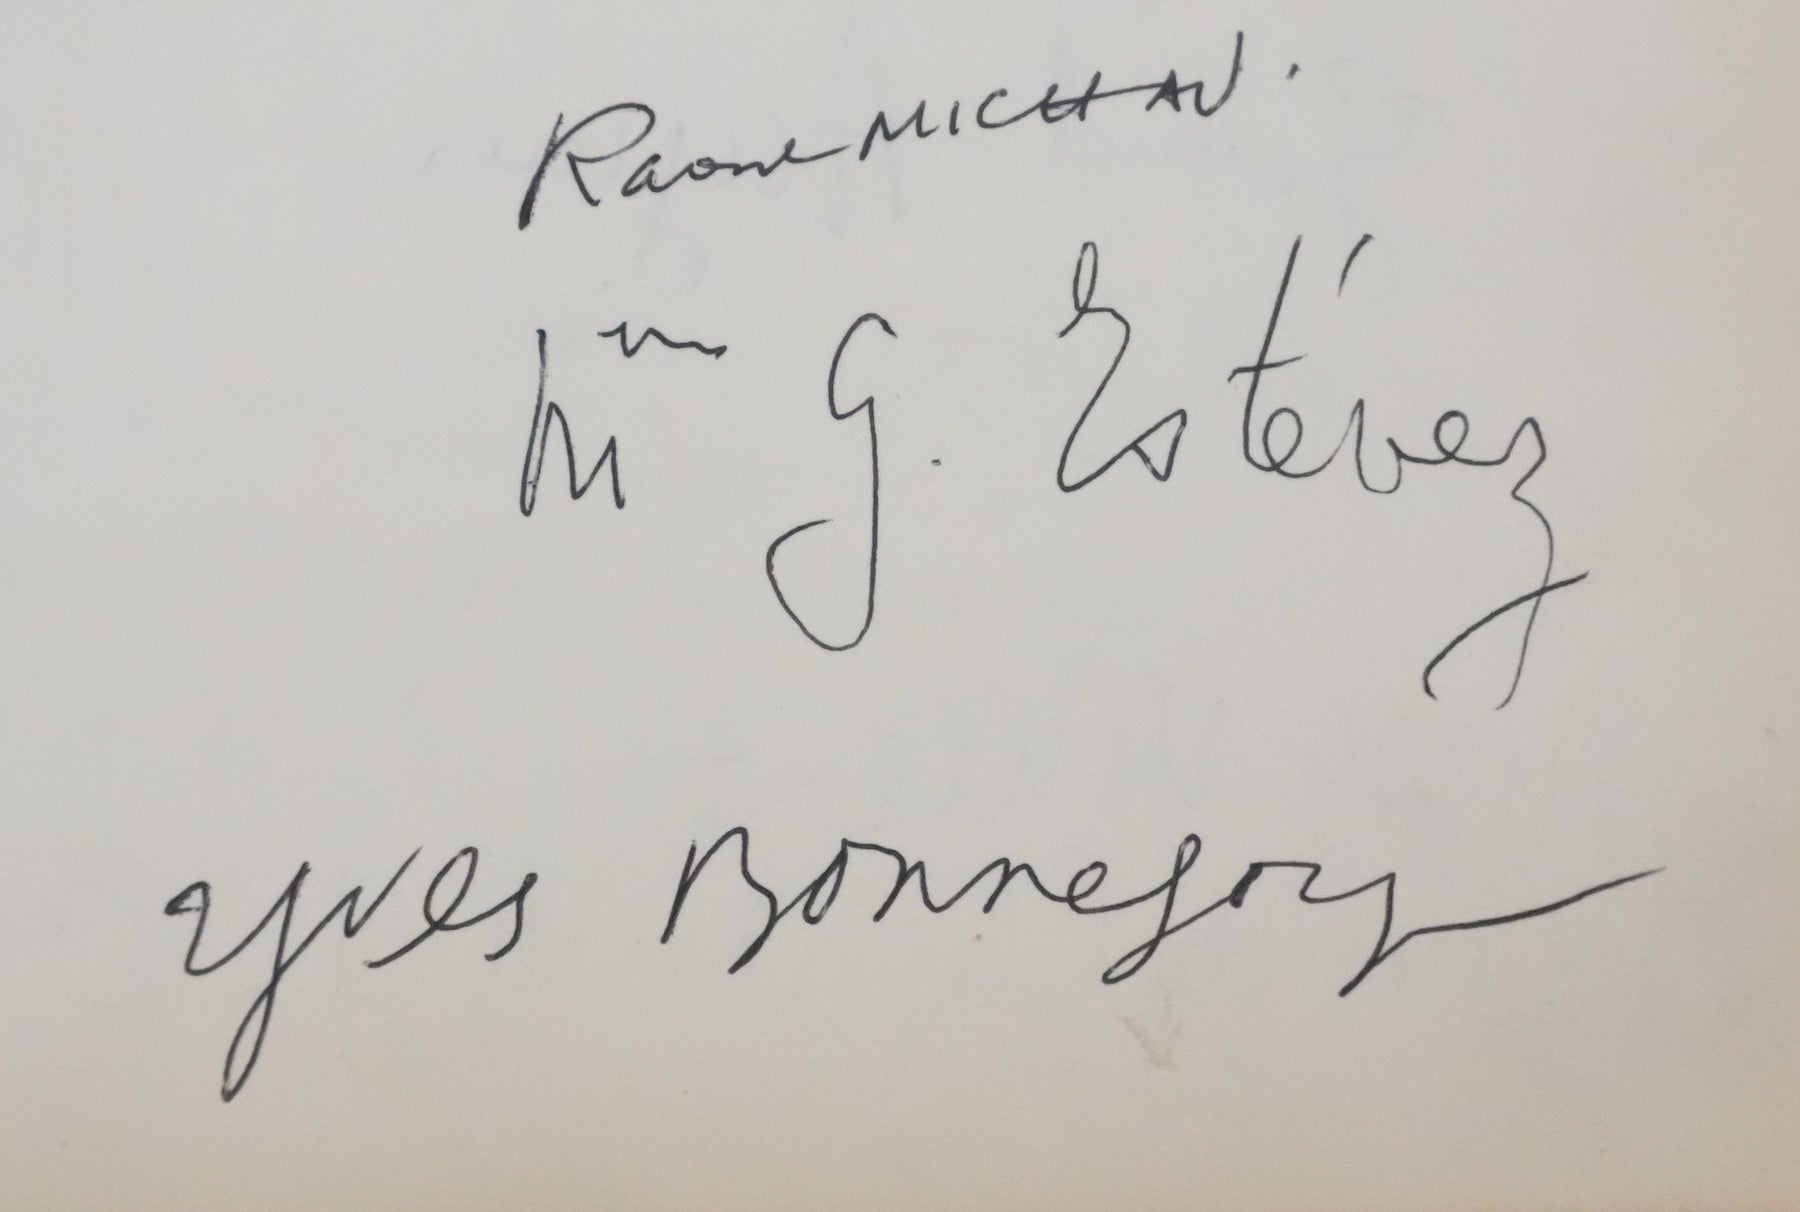 Raoul MICHAU.
Mme G. Estévez
Yves Bonnefoy